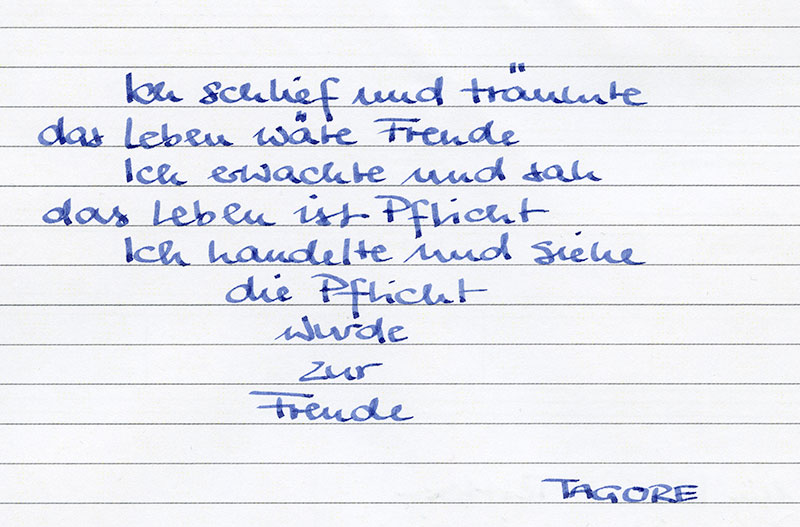 Ich schlief und träumte
das Leben wäre Freude
Ich erwachte und sah
das Leben ist Pflicht
Ich handelte und siehe
die Pflicht
wurde
zur
Freude
TAGORE